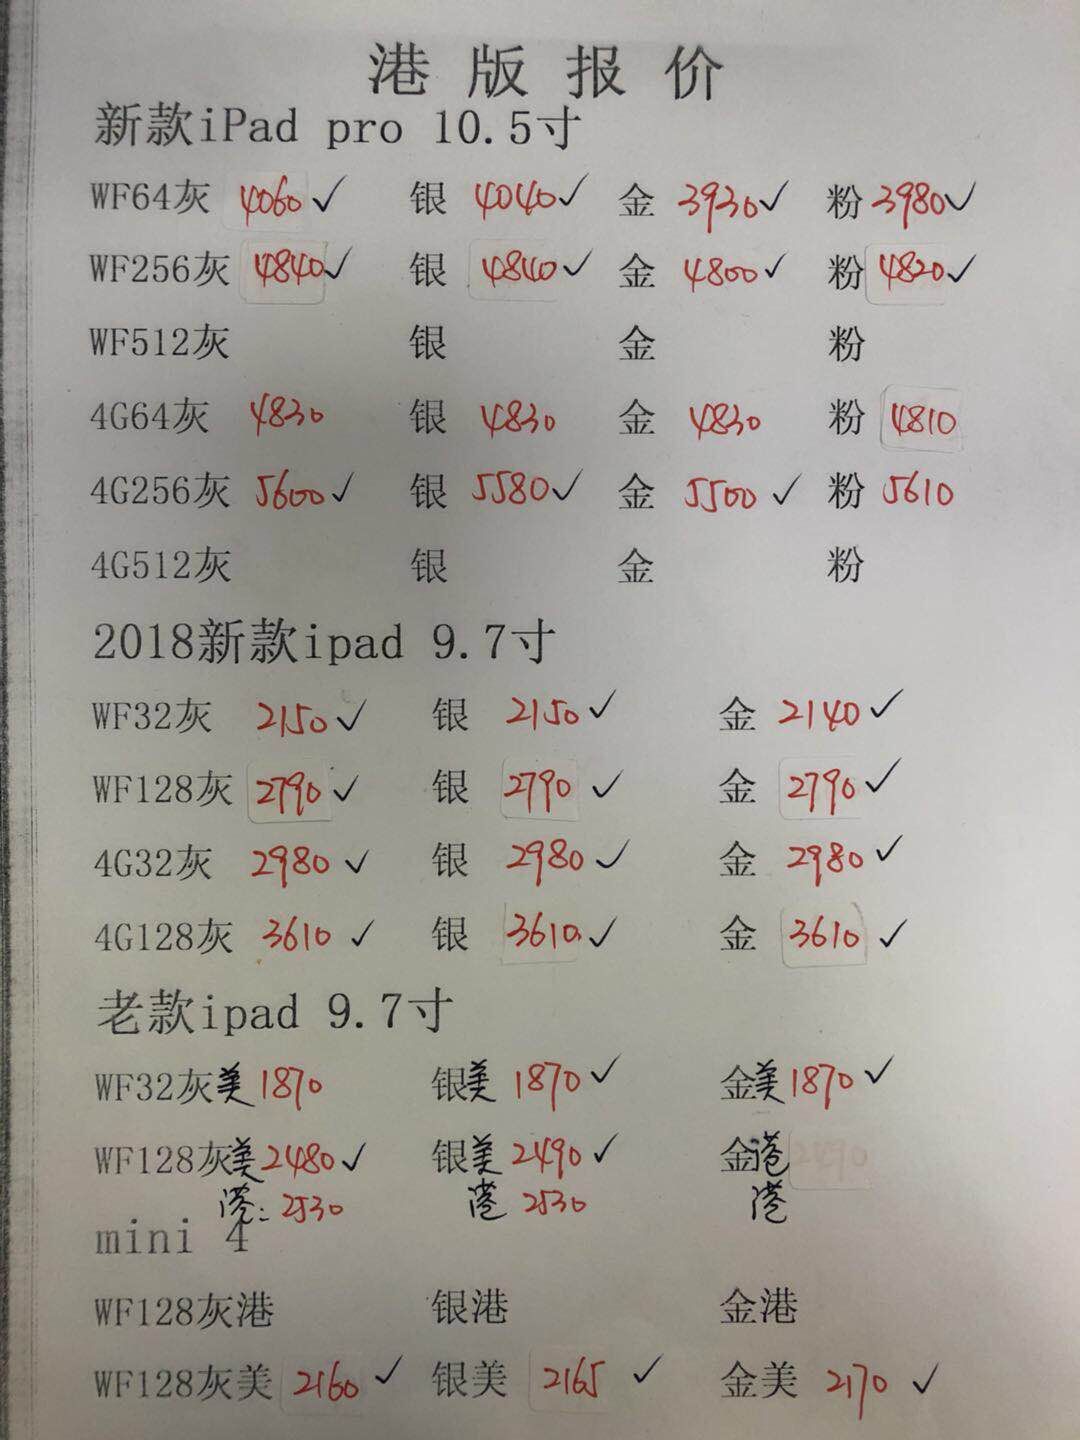 港版报价
新款iPad pro 10.5寸
WF64灰 4060✓ 银 4040✓ 金 3930✓ 粉 3980✓
WF256灰 4840✓ 银 4840✓ 金 4800✓ 粉 4820✓
WF512灰 银 金 粉
4G64灰 4830 银 4830 金 4830 粉 4810
4G256灰 5600✓ 银 5580✓ 金 5500✓ 粉 5610
4G512灰 银 金 粉
2018新款ipad 9.7寸
WF32灰 2150✓ 银 2150✓ 金 2140✓
WF128灰 2790✓ 银 2790✓ 金 2790✓
4G32灰 2980✓ 银 2980✓ 金 2980✓
4G128灰 3610✓ 银 3610✓ 金 3610✓
老款ipad 9.7寸
WF32灰美 1870 银美 1870✓ 金美 1870✓
WF128灰美 2480✓ 银美 2490✓ 金港 2490
港: 2530 港 2530 港
mini 4
WF128灰港 银港 金港
WF128灰美 2160✓ 银美 2165✓ 金美 2170✓